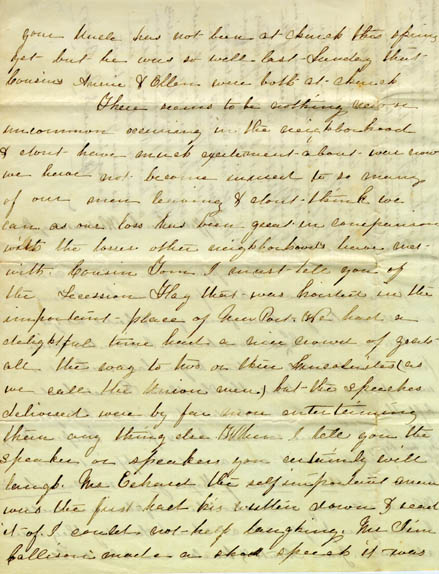 your Uncle has not been at church this spring
yet but he was so well last Sunday that
Cousins Annie & Ellen were both at church
There seems to be nothing new or
uncommon occuring in the neighborhood
& dont have much excitement about war now
we have not become inured to so many
of our men leaving & dont think we
can as our loss has been great in comparison
with the losses other neighborhoods have met
with. Cousin Tom I must tell you of
the Secession Flag that was hoisted in the
important place of New Port. We had a
delightful time had a nice crowd of
all the way to two or three Lincolnites (as
we call the Union men) but the speeches
delivered were by far more entertaining
than any thing else When I tell you the
speaker or speakers you certainly will
laugh. Mr Eckard the self important man
was the first had his written down & read
it of I could not help laughing. Mr Jim
Callison made a short speech it was